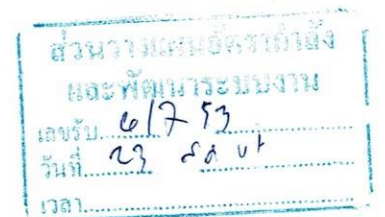 ส่วนวางแผนอัตรากำลัง
และพัฒนาระบบงาน
เลขรับ
วันที่ 23
เวลา